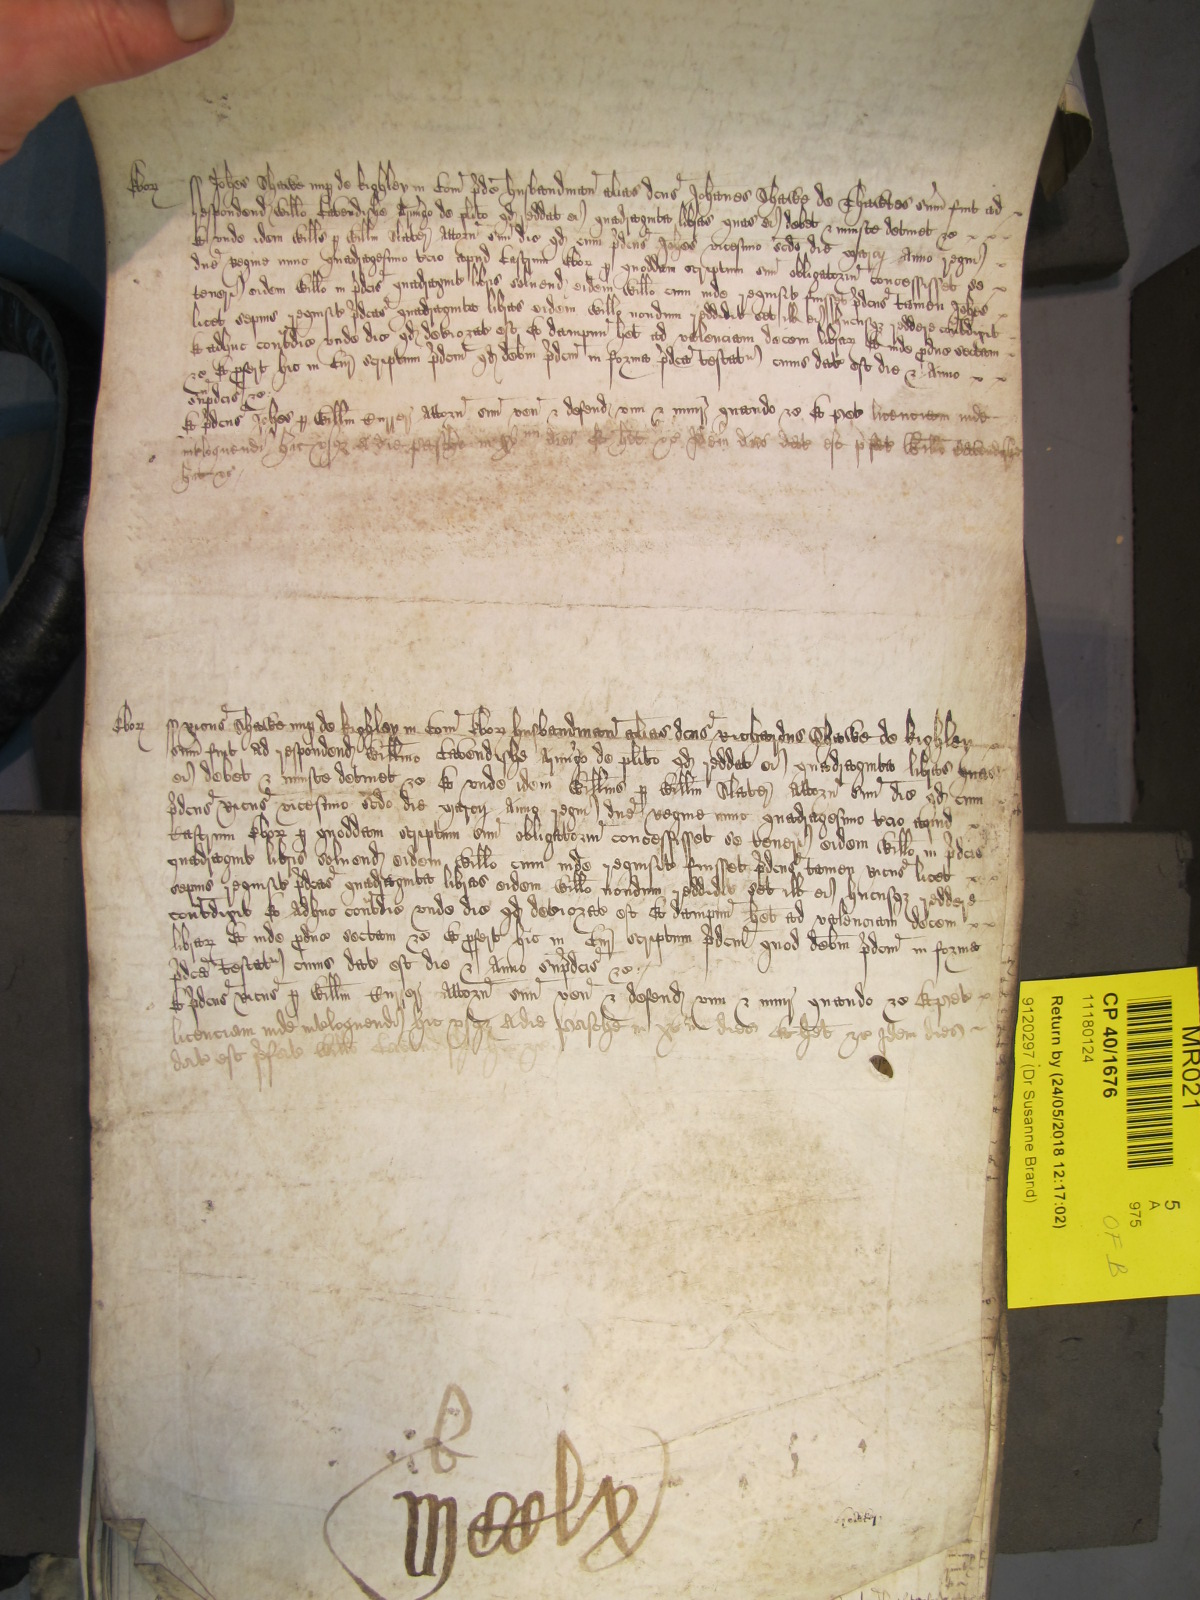 Ebor ss Johes Shawe nup de kighley in Com pdco husbandman alias dcus Johanes Shawe de sum fuit ad
respondend Willo Cavendisshe Armigo de plito qd reddat ei quadraginta libras quas ei debet & iniuste detinet &c
Et unde idem Wills p Willm Slater Attorn suu dic qd cum pdcus Johes vicesimo scdo die Marcij Anno regni
dne Regine nunc quadragesimo tcio apud Castrum Ebor p quoddam scriptum suu obligatoriu concessisset se
teneri eidem Willo in pdcis quadragint libris solvend eidem Willo cum inde requisit fuisset pdcus tamen Johes
licet sepius requisit pdcas quadraginta libras eidem Willo nondum reddidit set ill ei hucusqz reddere contradixit
Et adhuc contradic unde dic qd deteriorat est Et dampnu het ad valenciam decem librar Et inde produc sectam
&c Et profert hic in Cur scriptum pdcm qd debitm pdcm in forma pdca testatr cuius dat est die & Anno
supradcis &c
Et pdcus Johes p Willm Attorn suu ven & defend vim & iniur quando &c Et pet licenciam inde
interloquendi hic usqz a die pasche in xv dies Et het &c Idem dies dat est pfat Willo Cavendisshe
hic &c
Ebor ss Ricus Shawe nup de kighley in Com Ebor husbandman alias dcus Richardus Shawe de kighley
sum fuit ad respondend Willmo Cavendisshe Armigo de plito qd reddat ei quadraginta libras quas
ei debet & iniuste detinet &c Et unde idem Willmus p Willm Slater Attorn suu dic qd cum
pdcus Ricus vicesimo scdo die Marcij Anno regni dne Regine nunc quadragesimo tcio apud
Castrum Ebor p quoddam scriptum suu obligatoriu concessisset se teneri eidem Willo in pdcis
quadragint libris solvend eidem Willo cum inde requisit fuisset pdcus tamen Ricus licet
sepius requisit pdcas quadraginta libras eidem Willo nondum reddidit set ill ei hucusqz reddere
contradixit Et adhuc contradic unde dic qd deteriorat est Et dampnu het ad valenciam decem
librar Et inde produc sectam &c Et profert hic in Cur scriptum pdcm quod debitm pdcm in forma
pdca testatr cuius dat est die & Anno supradcis &c
Et pdcus Ricus p Willm Attorn suu ven & defend vim & iniur quando &c Et pet
licenciam inde interloquendi hic usqz a die pasche in xv dies Et het &c Idem dies
dat est pfato Willo
MR021
5
A
975
OF B
CP 40/1676
11180124
Return by (24/05/2018 12:17:02)
9120297 (Dr Susanne Brand)